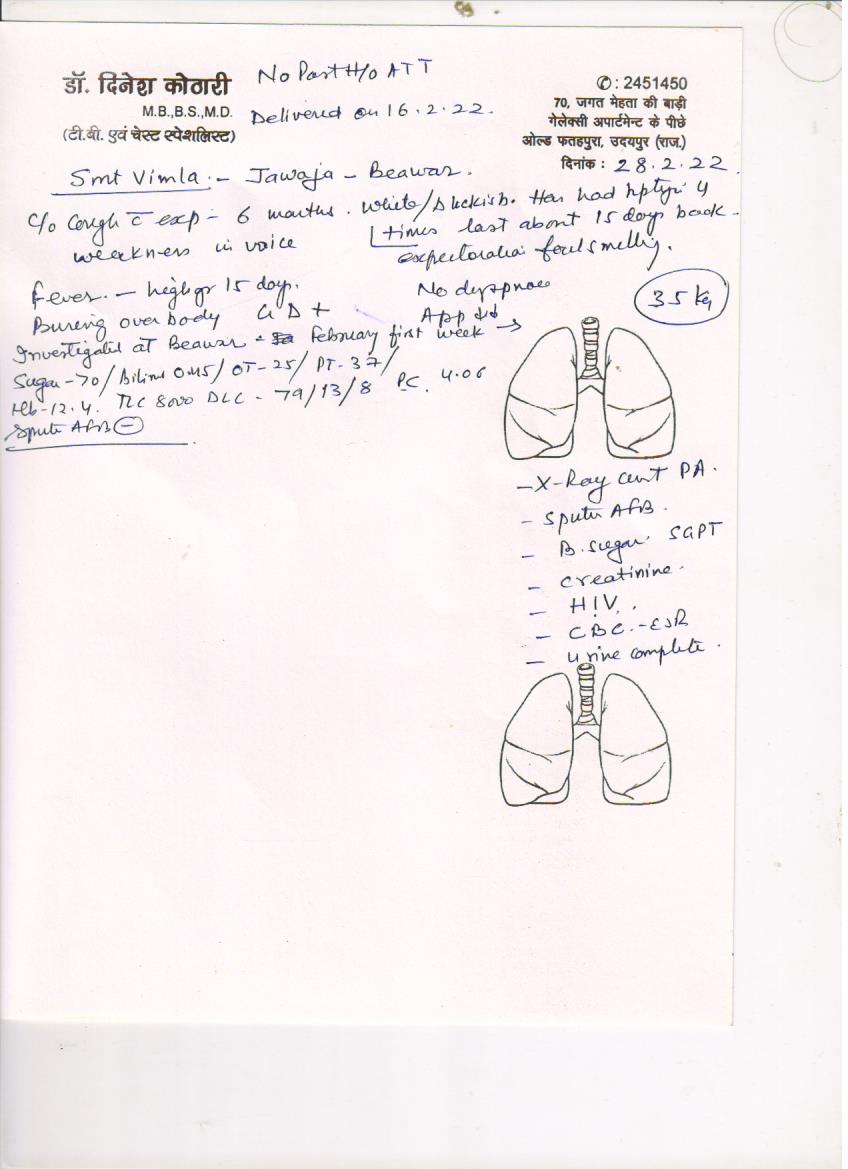 डॉ. दिनेश कोठारी
M.B.,B.S.,M.D.
(टी.बी. एवं चेस्ट स्पेशलिस्ट)
No Past H/o ATT
Delivered on 16.2.22.
✆ : 2451450
70, जगत मेहता की बाड़ी
गेलेक्सी अपार्टमेन्ट के पीछे
ओल्ड फतहपुरा, उदयपुर (राज.)
दिनांक : 28.2.22
Smt Vimla - Jawaja - Beawar.
C/o Cough c̄ exp - 6 months. White/ Has had 4
times last about 15 days back
weakness in voice
expectoration foul smelling.
Fever - high gr 15 days.
No dyspnoea
35 Kg
Burning over body
App ↓↓
Investigated at Beawar - February first week →
Sugar - 70/ 0.45/ OT-25/ PT-37/
Hb-12.4. TLC 8000 DLC - 79/13/8 PC. 4.06
Sputu AFB ⊖
- X-Ray PA.
- Sputu AFB.
- B. Sugar. SGPT
- Creatinine.
- HIV.
- CBC - ESR
- Urine complete.